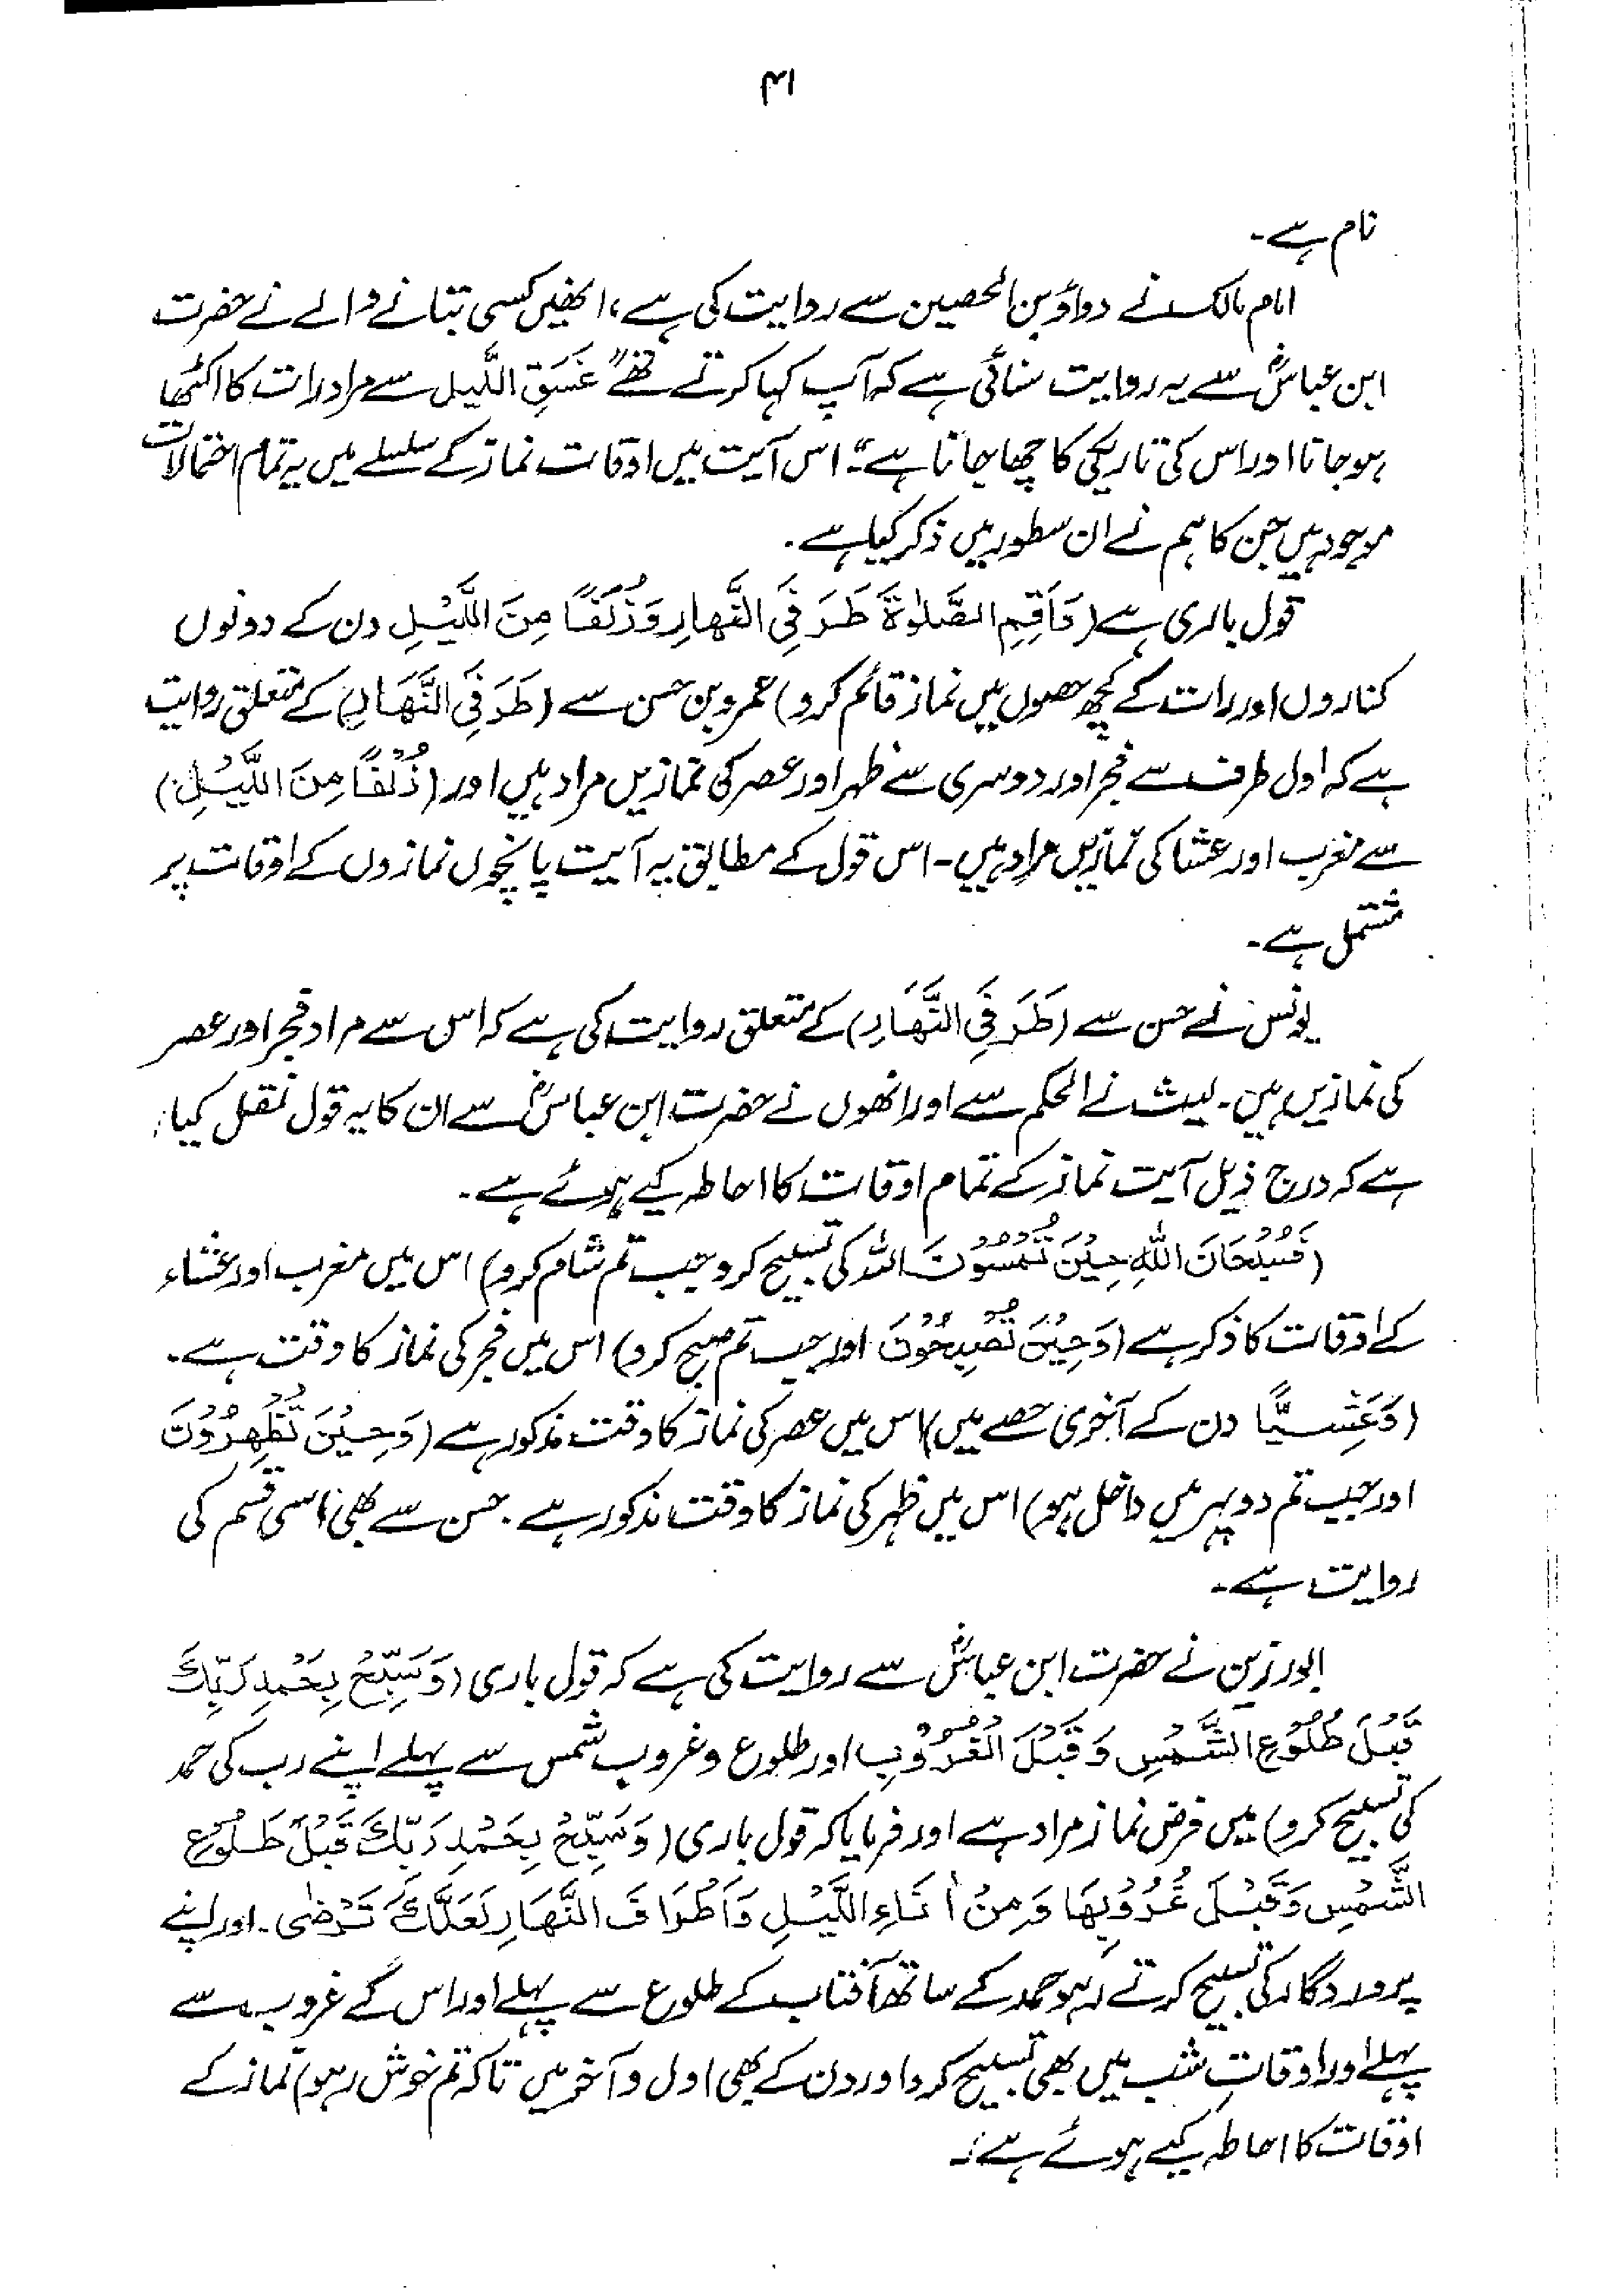 ۴۱
نام ہے۔
امام مالک نے دواؤد بن الحصین سے روایت کی ہے، انھیں کسی بتانے والے نے حضرت
ابن عباسؓ سے یہ روایت سنائی ہے کہ آپ کہا کرتے تھے "غَسَقِ اللَّیل سے مراد رات کا اکٹھا
ہو جانا اور اس کی تاریکی کا چھا جانا ہے"۔ اس آیت میں اوقات نماز کے سلسلے میں یہ تمام احتمالات
موجود ہیں جن کا ہم نے ان سطور میں ذکر کیا ہے۔
قول باری ہے (وَاَقِمِ الصَّلٰوۃَ طَرَفَیِ النَّهَارِ وَزُلَفًا مِنَ اللَّیْلِ دن کے دونوں
کناروں اور رات کے کچھ حصوں میں نماز قائم کرو) عمرو بن حسن سے (طَرَفَیِ النَّهَارِ) کے متعلق روایت
ہے کہ اول طرف سے فجر اور دوسری سے ظہر اور عصر کی نمازیں مراد ہیں اور (زُلَفًا مِنَ اللَّیْلِ)
سے مغرب اور عشا کی نمازیں مراد ہیں۔ اس قول کے مطابق یہ آیت پانچوں نمازوں کے اوقات پر
مشتمل ہے۔
یونس نے حسن سے (طَرَفَیِ النَّهَارِ) کے متعلق روایت کی ہے کہ اس سے مراد فجر اور عصر
کی نمازیں ہیں۔ لیث نے الحکم سے اور انھوں نے حضرت ابن عباسؓ سے ان کا یہ قول نقل کیا
ہے کہ درج ذیل آیت نماز کے تمام اوقات کا احاطہ کیے ہوئے ہے۔
(فَسُبْحَانَ اللّٰهِ حِیْنَ تُمْسُوْنَ اللہ کی تسبیح کرو جب تم شام کرو) اس میں مغرب اور عشاء
کے اوقات کا ذکر ہے (وَحِیْنَ تُصْبِحُوْنَ اور جب تم صبح کرو) اس میں فجر کی نماز کا وقت ہے۔
(وَعَشِیًّا دن کے آخری حصے میں) اس میں عصر کی نماز کا وقت مذکور ہے (وَحِیْنَ تُظْهِرُوْنَ
اور جب تم دوپہر میں داخل ہو) اس میں ظہر کی نماز کا وقت مذکور ہے۔ حسن سے بھی اسی قسم کی
روایت ہے۔
ابورزین نے حضرت ابن عباسؓ سے روایت کی ہے کہ قول باری (وَسَبِّحْ بِحَمْدِ رَبِّكَ
قَبْلَ طُلُوْعِ الشَّمْسِ وَقَبْلَ الْغُرُوْبِ اور طلوع و غروب شمس سے پہلے اپنے رب کی حمد
کی تسبیح کرو) میں فرض نماز مراد ہے اور فرمایا کہ قول باری (وَسَبِّحْ بِحَمْدِ رَبِّكَ قَبْلَ طُلُوْعِ
الشَّمْسِ وَقَبْلَ غُرُوْبِهَا وَمِنْ اٰنَاءِ اللَّیْلِ وَاَطْرَافَ النَّهَارِ لَعَلَّكَ تَرْضٰی۔ اور اپنے
پروردگار کی تسبیح کرتے رہو حمد کے ساتھ آفتاب کے طلوع سے پہلے اور اس کے غروب سے
پہلے اور اوقاتِ شب میں بھی تسبیح کرو اور دن کے بھی اول و آخر میں تاکہ تم خوش رہو) نماز کے
اوقات کا احاطہ کیے ہوئے ہے۔